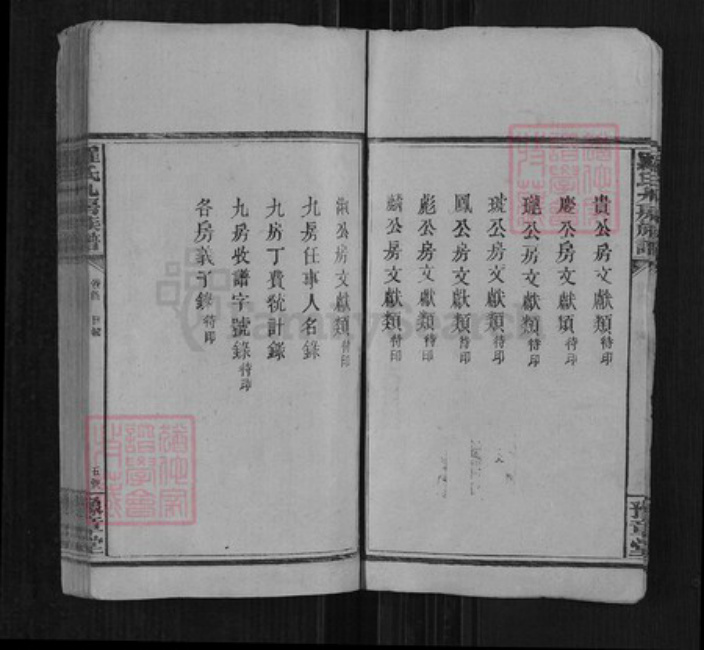 貴公房文獻類待印
慶公房文獻類待印
公房文獻類待印
公房文獻類待印
鳳公房文獻類待印
彪公房文獻類待印
麟公房文獻類待印
淑公房文獻類待印
九房任事人名錄
九房丁費統計錄
九房收譜字號錄待印
各房義子錄待印
羅氏九房族譜
豫章堂
羅氏九房族譜
豫章堂
FamilySearch